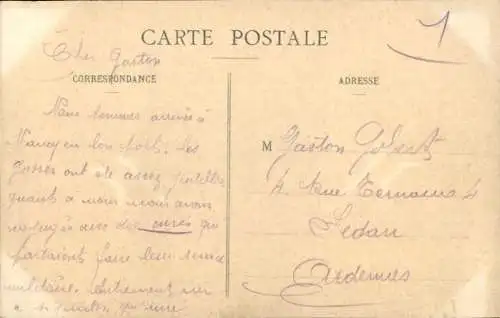 CARTE POSTALE
Cher Gaston
CORRESPONDANCE
ADRESSE
Nous sommes arrivés à
Nancy en bon port. Les
gosses ont été assez gentilles
quant à nous nous avons
voyagés avec des curés qui
partaient faire leur service
militaire.
M Gaston
4 Rue Ternaux 4
Sedan
Ardennes